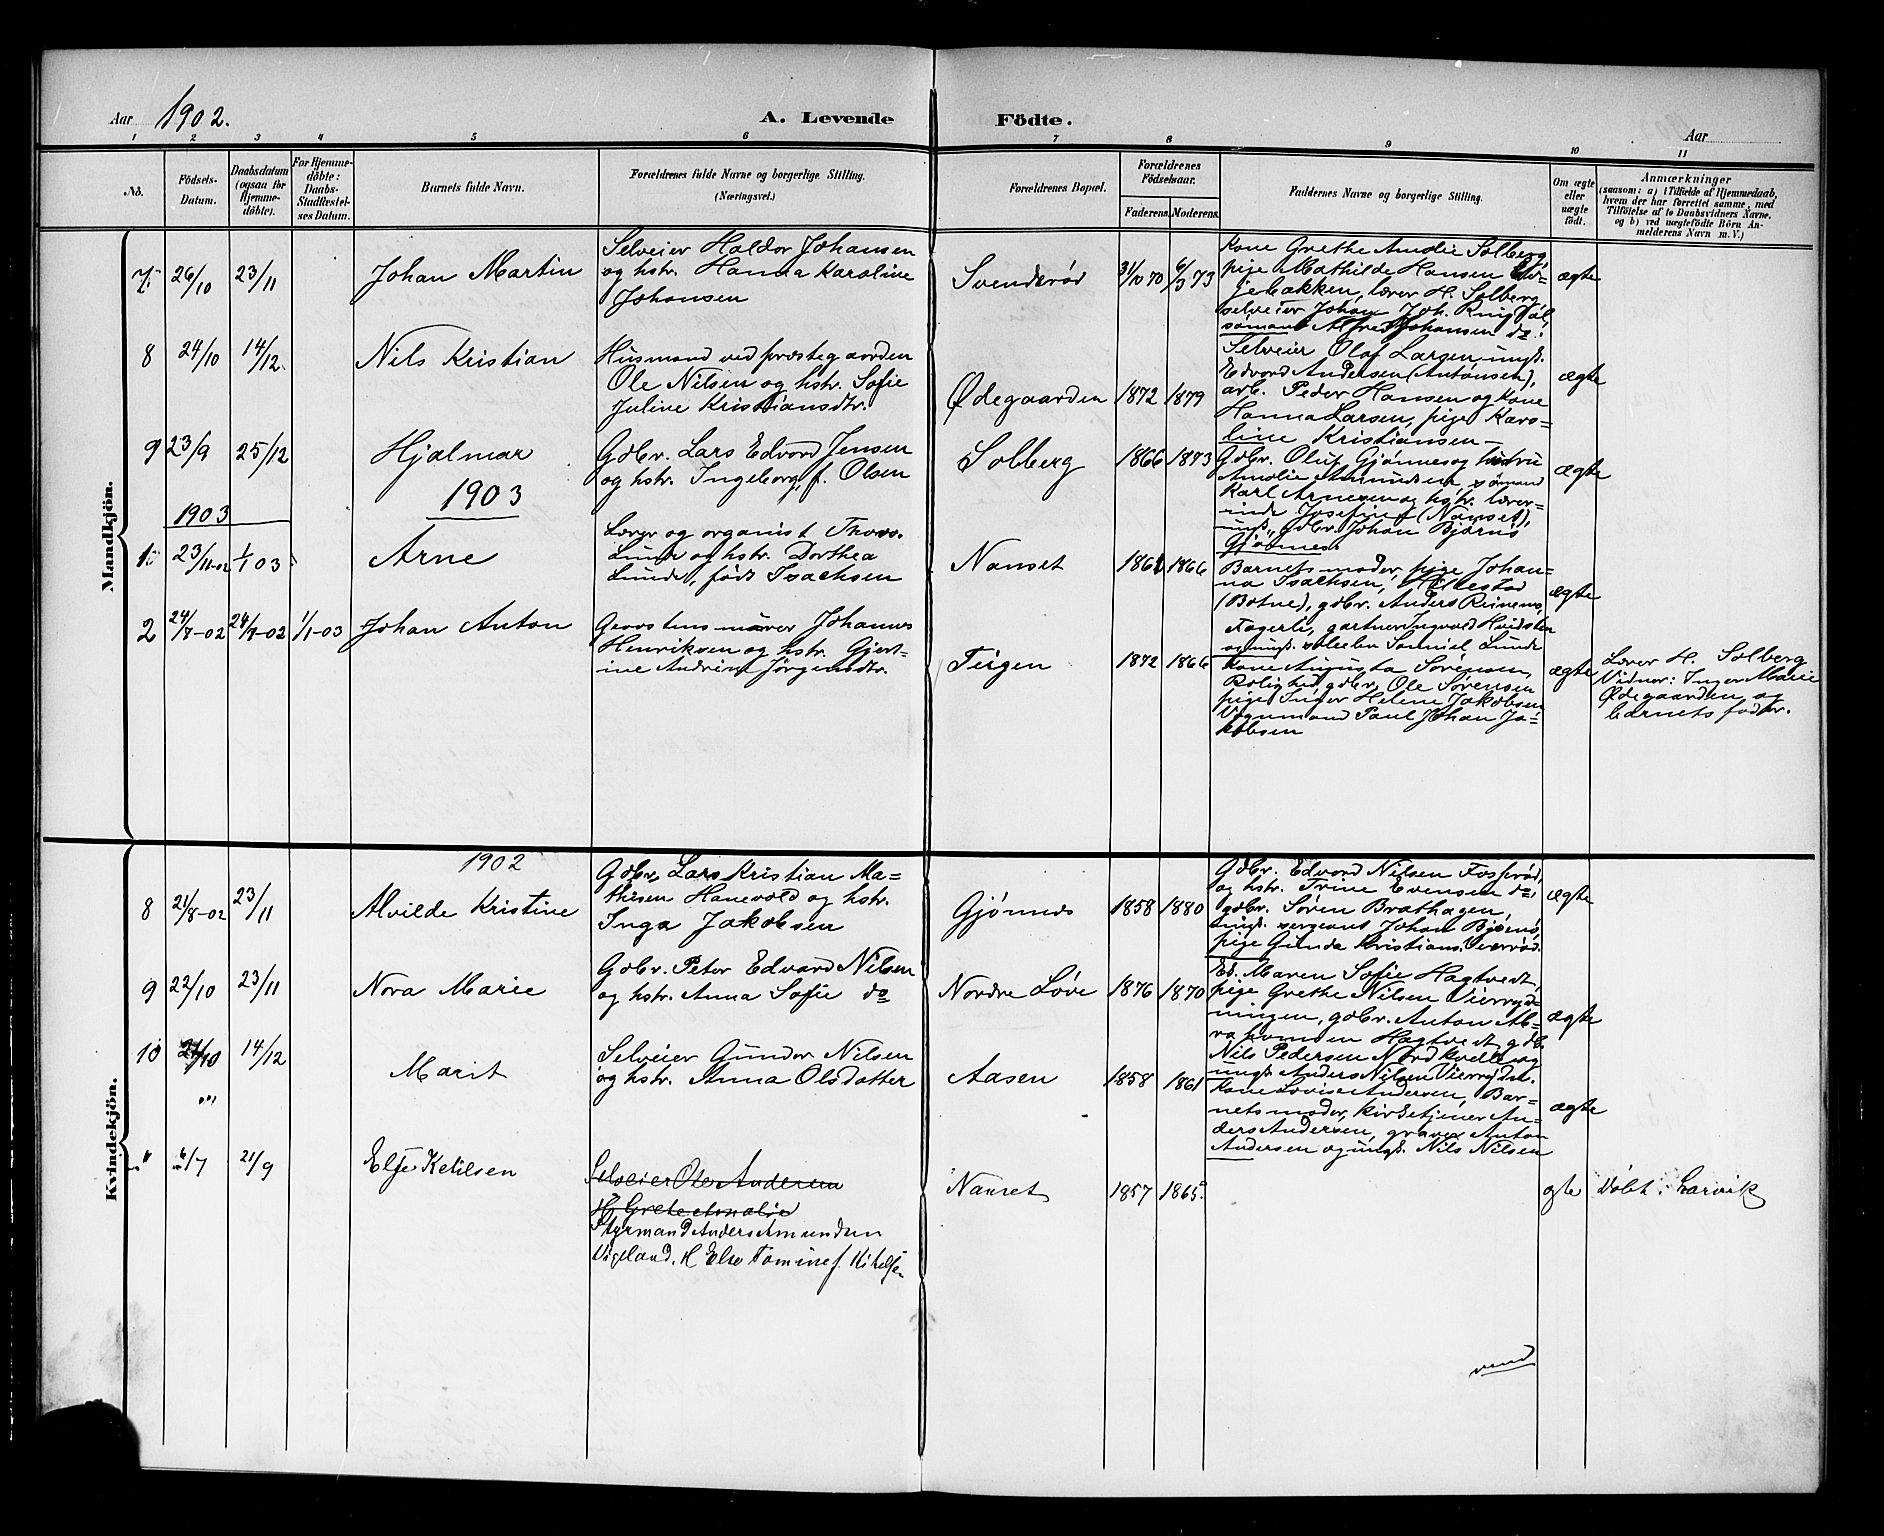 Aar 1902. A. Levende Födte. Aar
1 2 3 4 5 6 7 8 9 10 11
No.
Födsels-
Datum.
Daabsdatum
(ogsaa for
Hjemme-
döbte).
For Hjemme-
döbte:
Daabs-
Stadfæstel-
ses Datum.
Barnets fulde Navn.
Forældrenes fulde Navne og borgerlige Stilling.
(Næringsvei.)
Forældrenes Bopæl.
Forældrenes
Födselsaar.
Faderens. Moderens.
Faddernes Navne og borgerlige Stilling.
Om ægte
eller
uægte
födt.
Anmærkninger
(saasom: a) i Tilfælde af Hjemmedaab,
hvem der har forrettet samme, med
Tilföielse af to Daabsvidners Navne,
og b) ved uægtefödte Börn An-
melderens Navn m. V.)
Mandkjön.
7. 26/10 23/11 Johan Martin
Selveier Haldor Johansen
og hstr. Hanna Karoline
Johansen
Svenderød 31/10 70 6/3 73
Kone Grethe Amalie Solberg,
pige Mathilde Hansen
jebakken, lærer H. Solberg,
selveier Johan Joh. Ringdal,
sömand Alfred Johansen do.
ægte
8 24/10 14/12. Nils Kristian
Husmand ved præstegaarden
Ole Nilsen og hstr. Sofie
Juline Kristiansdtr.
Ødegaarden 1872 1879
Selveier Olaf Larsen, ungk.
Edvard Andersen (Antonsen),
arb. Peder Hansen og kone
Hanna Larsen, pige Karo-
line Kristiansen
ægte
9 23/9 25/12 Hjalmar
Gdbr. Lars Edvard Jensen
og hstr. Ingeborg, f. Olsen
Solberg 1866 1873
Gdbr. Oluf Gjønnes og hustru
Amalie Amundsen, sömand
Karl Arnesen og hstr. lærer-
inde Josefine (Nanset),
ungk. gdbr. Johan Bjørnö
Gjönnes
ægte
1903
1903
1. 23/11-02 1/1 03 Arne
Lærer og organist Thorv.
Lunde og hstr. Dorthea
Lunde, født Isachsen
Nanset 1861 1866
Barnets moder, pige Johan-
na Isachsen, Hillestad
(Botne), gdbr. Anders Reinem,
Fagerli, gartner Ingvald Hvidsten
og ungk. Samuel Lunde
ægte
2 24/7-02 24/7-02 1/1-03 Johan Anton
Graastensmurer Johannes
Henriksen og hstr. Gjert-
ine Andrine Jørgensdtr.
Teigen 1872 1866
Kone Augusta Sørensen
Rolighed, gdbr. Ole Sørensen
pige Inger Helene Jakobsen
Vognmand Paul Johan Ja-
kobsen
ægte
Lærer H. Solberg
Vidner: Inger Marie
Ødegaarden og
barnets fader.
Kvindekjön.
1902
8 21/8-02 23/11 Alvilde Kristine
Gdbr. Lars Kristian Ma-
thisen Hanevold og hstr.
Inga Jakobsen
Gjønnes 1858 1880
Gdbr. Edvard Nilsen Fosserød,
og hstr. Trine Evensen do,
gdbr. Søren Brathagen,
ungk. sergeant Johan Bjørnö,
pige Gunda Kristians. Vierrød.
ægte
9 22/10 23/11 Nora Marie
Gdbr. Peter Edvard Nilsen
og hstr. Anna Sofie do
Nordre Løve 1876 1870
Ek. Maren Sofie Hagtvedt,
pige Grethe Nilsen Vierryd-
ningen, gdbr. Anton Ab-
rahamsen Hagtvedt, gdb.
Nils Pedersen Nordkvelle og
ungk. Anders Nilsen Vierrydn.
ægte
10 21/10 14/12 Marit
Selveier Gunder Nilsen
og hstr. Anna Olsdatter
Aasen 1858 1861
Kone Lovise Andersen, Bar-
nets moder, kirketjener An-
ders Andersen, graver Anton
Andersen og ungk. Nils Nilsen
ægte
" 6/7 21/9 Else Ketilsen
Selveier Ole Andersen
H. Grete Amalie
Styrmand Anders Amundsen
Vigeland. H Else Tomine f. Kitelsen
Nanset 1857 1865.
ægte
Døbt i Larvik
vend